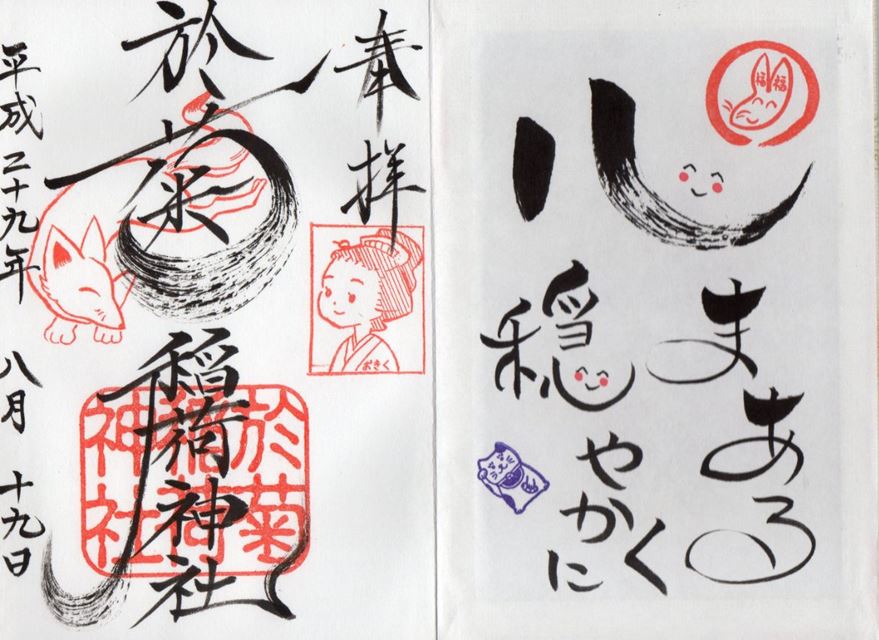 福 福
心
まあるく
穏やかに
奉拝
おきく
於菊稲荷神社
於菊
稲荷
神社
平成二十九年 八月 十九日